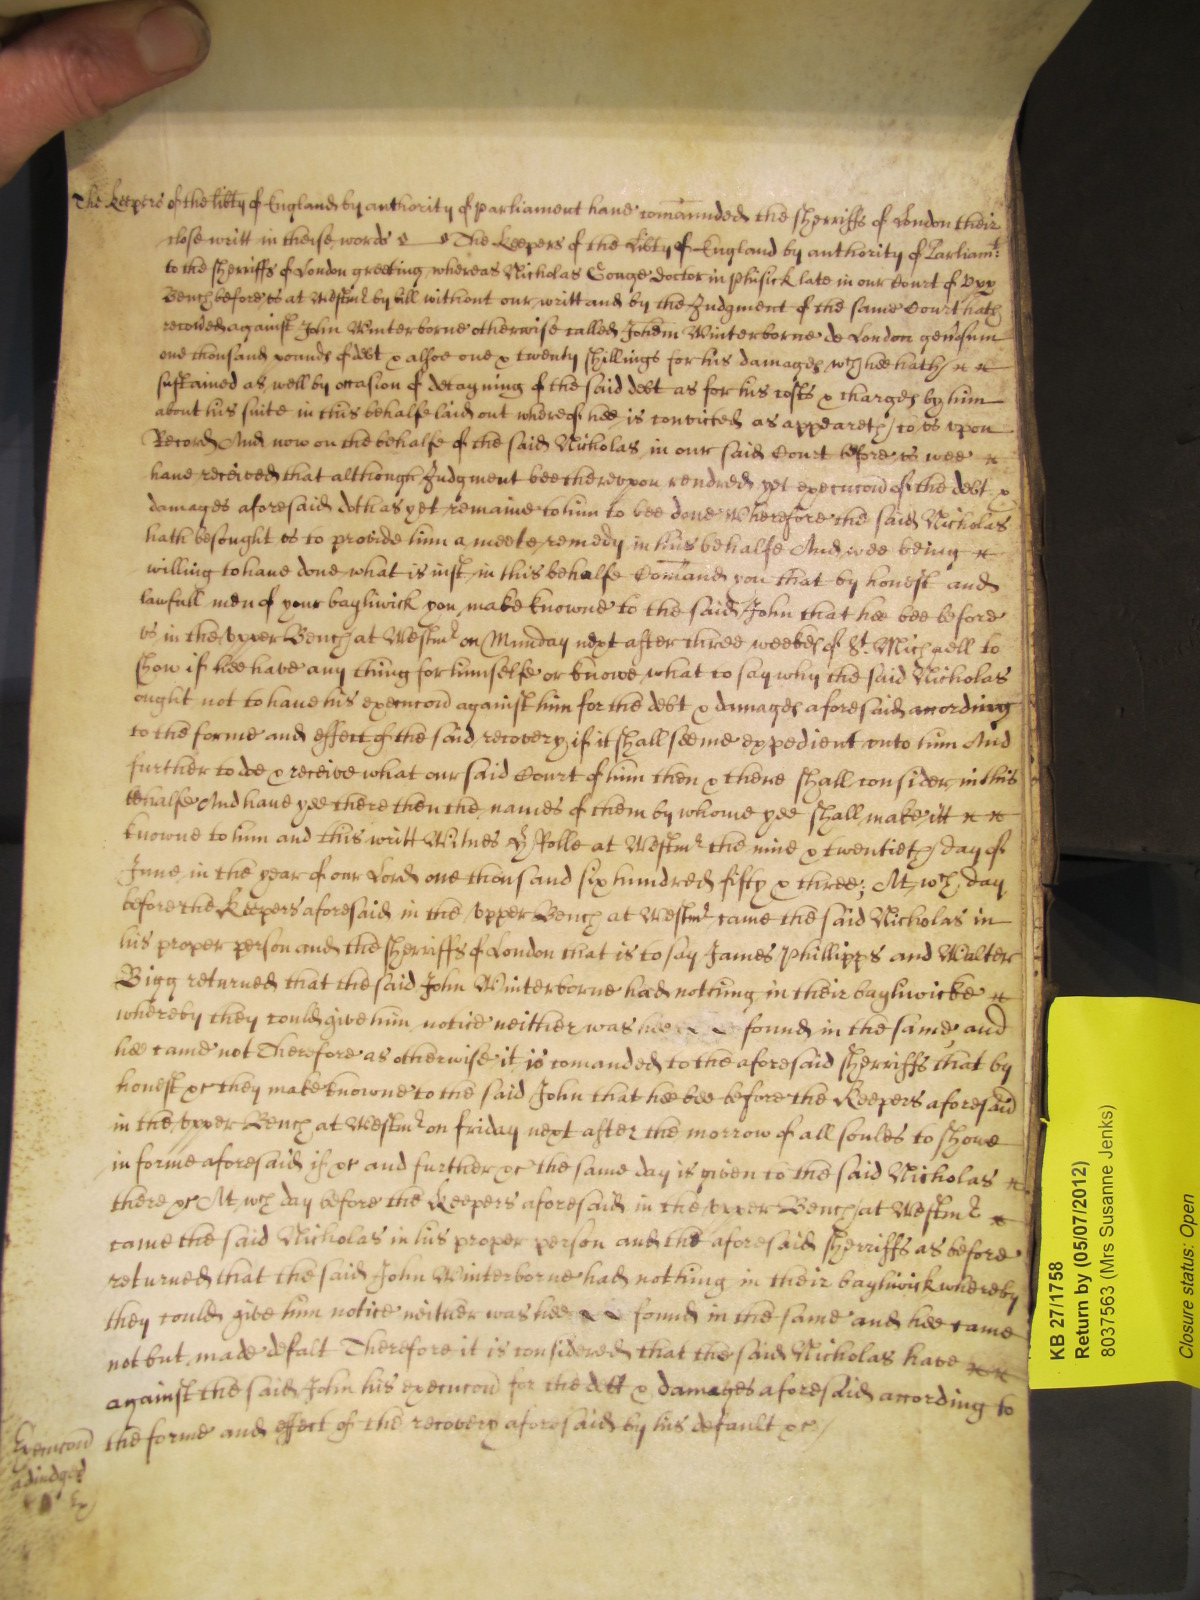 The Keepers of the libty of England by authority of Parliament have comaunded the Sherriffs of London their
close writt in theise words The Keepers of the Libty of England by authority of Parliamt
to the Sherriffs of London greeting whereas Nicholas Gouge doctor in phisick late in our Court of Upp
Bench before us at Westmr by bill without our writt and by the Judgment of the same Court hath
recoved against John Winterborne otherwise called Johem Winterborne de London genosum
one thousand pounds of debt & alsoe one & twenty shillings for his damages wch hee hath
sustained as well by occasion of detayning of the said debt as for his costs & charges by him
about his suite in this behalfe laid out whereof hee is convicted as appeareth to us upon
Record And now on the behalfe of the said Nicholas in our said Court before us wee
have received that although Judgment bee thereuppon rendred yet execucon of the debt &
damages aforesaid doth as yet remaine to him to bee done Wherefore the said Nicholas
hath besought us to provide him a meete remedy in this behalfe And wee being
willing to have done what is iust in this behalfe Comand you that by honest and
lawfull men of your bayliwick you make knowne to the said John that hee bee before
us in the upper Bench at Westmr on Munday next after three weekes of St. Michaell to
show if hee have any thing for himselfe or knowe what to say why the said Nicholas
ought not to have his execucon against him for the debt & damages aforesaid according
to the forme and effect of the said recovery if it shall seeme expedient unto him And
further to doe & receive what our said Court of him then & there shall consider in this
behalfe And have yee there then the names of them by whome yee shall make itt
knowne to him and this writt Witnes H Rolle at Westmr the nine & twentieth day of
June in the year of our Lord one thousand six hundred fifty & three; At wch day
before the Keepers aforesaid in the upper Bench at Westmr came the said Nicholas in
his proper person and the Sherriffs of London that is to say James Phillipps and Walter
Bigg returned that the said John Winterborne had nothing in their bayliwicke
whereby they could give him notice neither was hee found in the same and
hee came not Therefore as otherwise it is comanded to the aforesaid Sherriffs that by
honest &c they make knowne to the said John that hee bee before the Keepers aforesaid
in the upper Bench at Westmr on friday next after the morrow of all soules to showe
in forme aforesaid if &c and further &c the same day is given to the said Nicholas
there &c At wch day before the Keepers aforesaid in the upper Bench at Westmr
came the said Nicholas in his proper person and the aforesaid Sherriffs as before
returned that the said John Winterborne had nothing in their bayliwick whereby
they could give him notice neither was hee found in the same and hee came
not but made defalt Therefore it is considered that the said Nicholas have
against the said John his execucon for the debt & damages aforesaid according to
the forme and effect of the recovery aforesaid by his default &c
Execucon
adiudged
KB 27/1758
Return by (05/07/2012)
8037563 (Mrs Susanne Jenks)
Closure status: Open